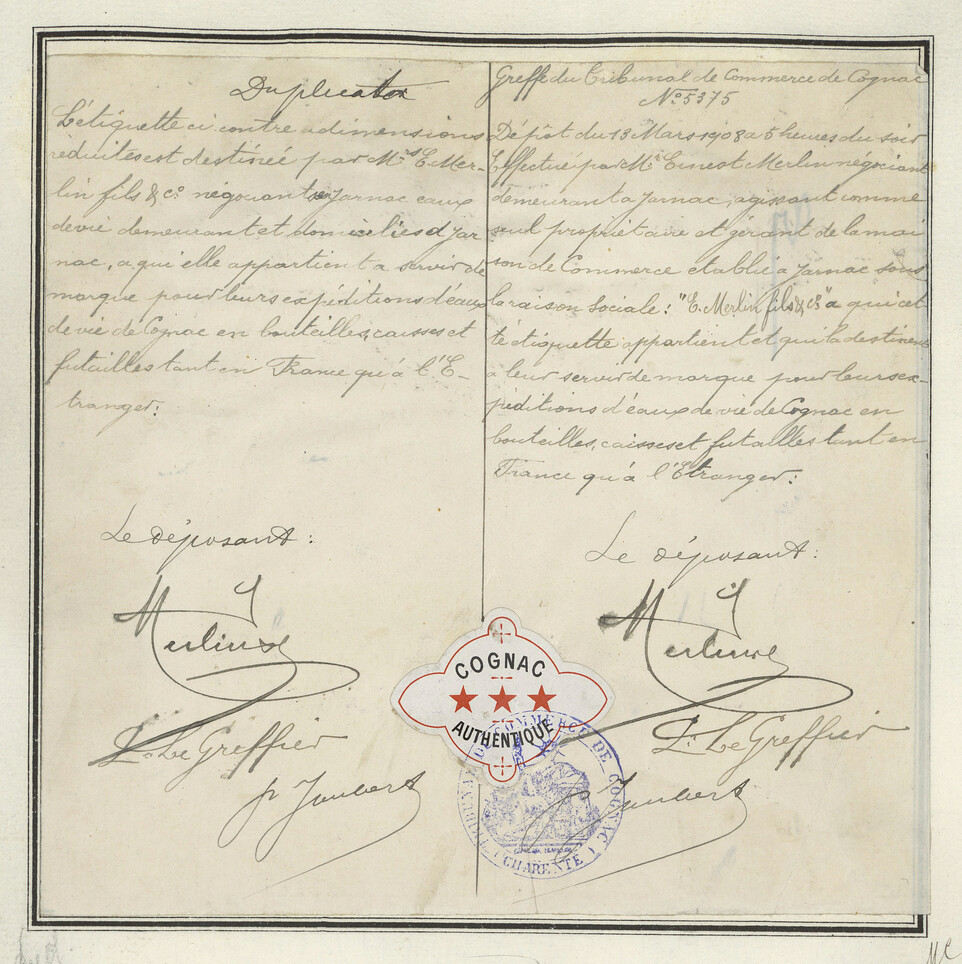 Duplicata
L'étiquette ci contre a dimensions
reduites est destinée par Mrs E. Mer-
lin fils & Co négociants a Jarnac eaux
de vie demeurant et domiciliés a Jar
nac, a qui elle appartient a servir de
marque pour leurs expéditions d'eaux
de vie de Cognac en bouteilles, caisses et
futailles tant en France qu'à l'É-
tranger:
Le déposant:
Merlin
Le Greffier
p Jaubert
Greffe du Tribunal de Commerce de Cognac
No 5375
Dépôt du 13 Mars 1908 a 5 heures du soir
Effectué par Mr Ernest Merlin négociant
demeurant a Jarnac, agissant comme
seul propriétaire et gérant de la mai
son de Commerce etablie à Jarnac sous
la raison sociale: "E. Merlin fils & Co" a qui cet
te étiquette appartient et qui la destinent
a leur servir de marque pour leurs ex-
péditions d'eaux de vie de Cognac en
bouteilles, caisses et futailles tant en
France qu'à l'Étranger:
Le déposant:
Merlin
Le Greffier
p Jaubert
COGNAC
AUTHENTIQUE
TRIBUNAL DE COMMERCE DE COGNAC
(CHARENTE)